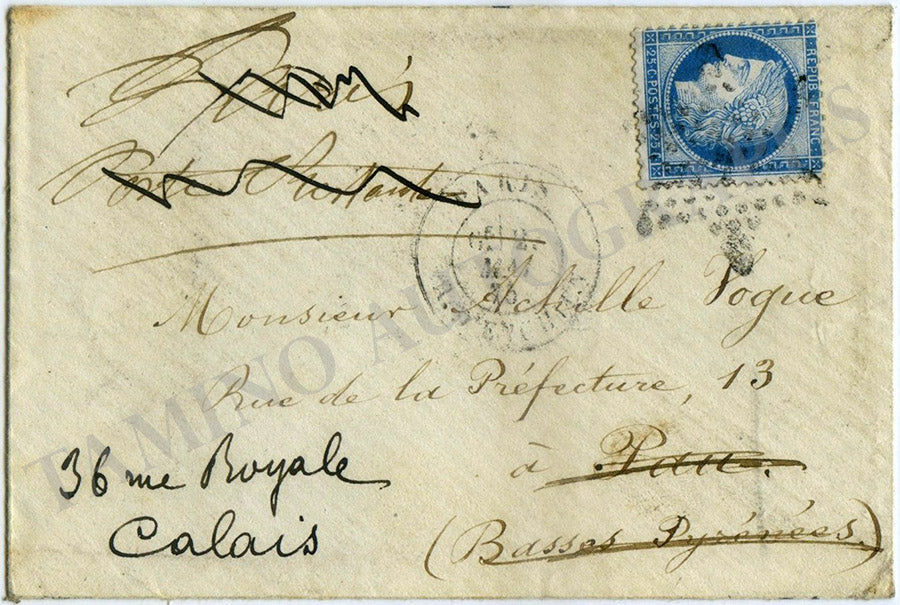 Paris
Poste Restante
REPUB. FRANC.
25 C. POSTES 25 C.
PARIS
MAI
Monsieur Achille Vogue
Rue de la Préfecture, 13
à Pau.
(Basses Pyrénées.)
36 rue Royale
Calais
TAMINO AUTOGRAPHS